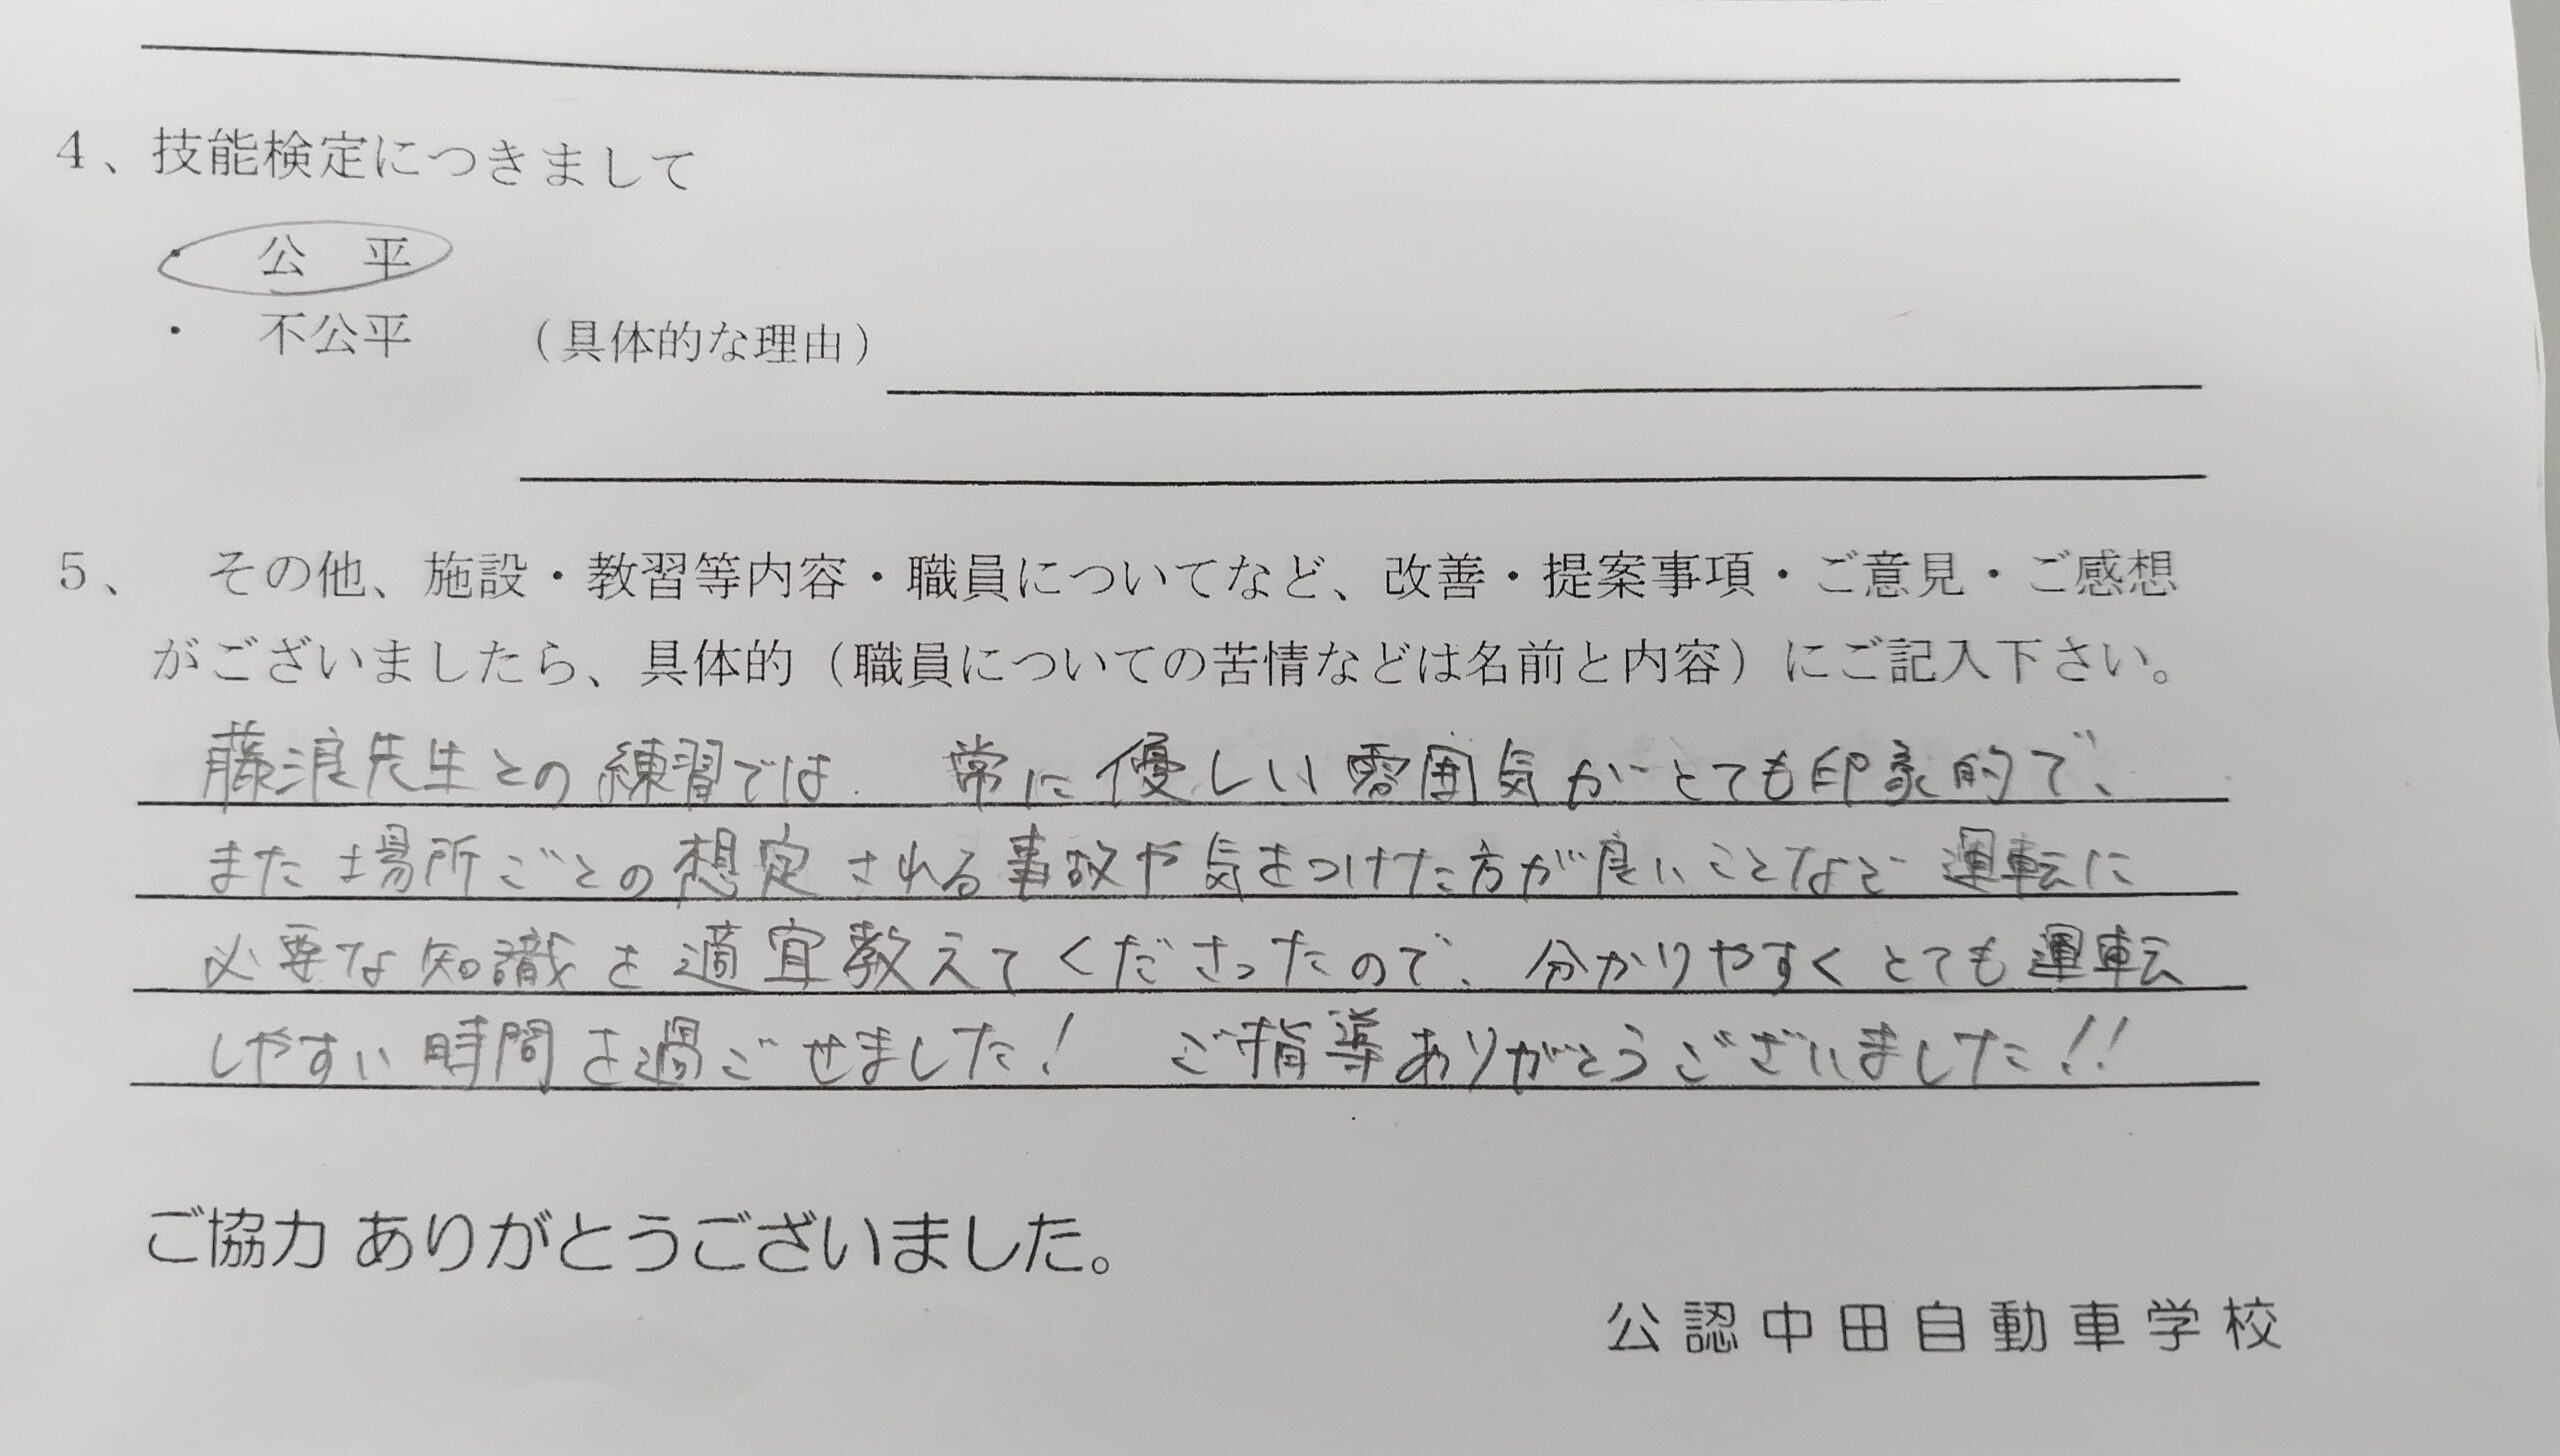 4、技能検定につきまして
・　公　平
・　不公平　（具体的な理由）
5、　その他、施設・教習等内容・職員についてなど、改善・提案事項・ご意見・ご感想
がございましたら、具体的（職員についての苦情などは名前と内容）にご記入下さい。
藤浪先生との練習では、常に優しい雰囲気がとても印象的で、
また場所ごとの想定される事故や気をつけた方が良いことなど運転に
必要な知識を適宜教えてくださったので、分かりやすくとても運転
しやすい時間を過ごせました！　ご指導ありがとうございました！！
ご協力 ありがとうございました。
公認中田自動車学校